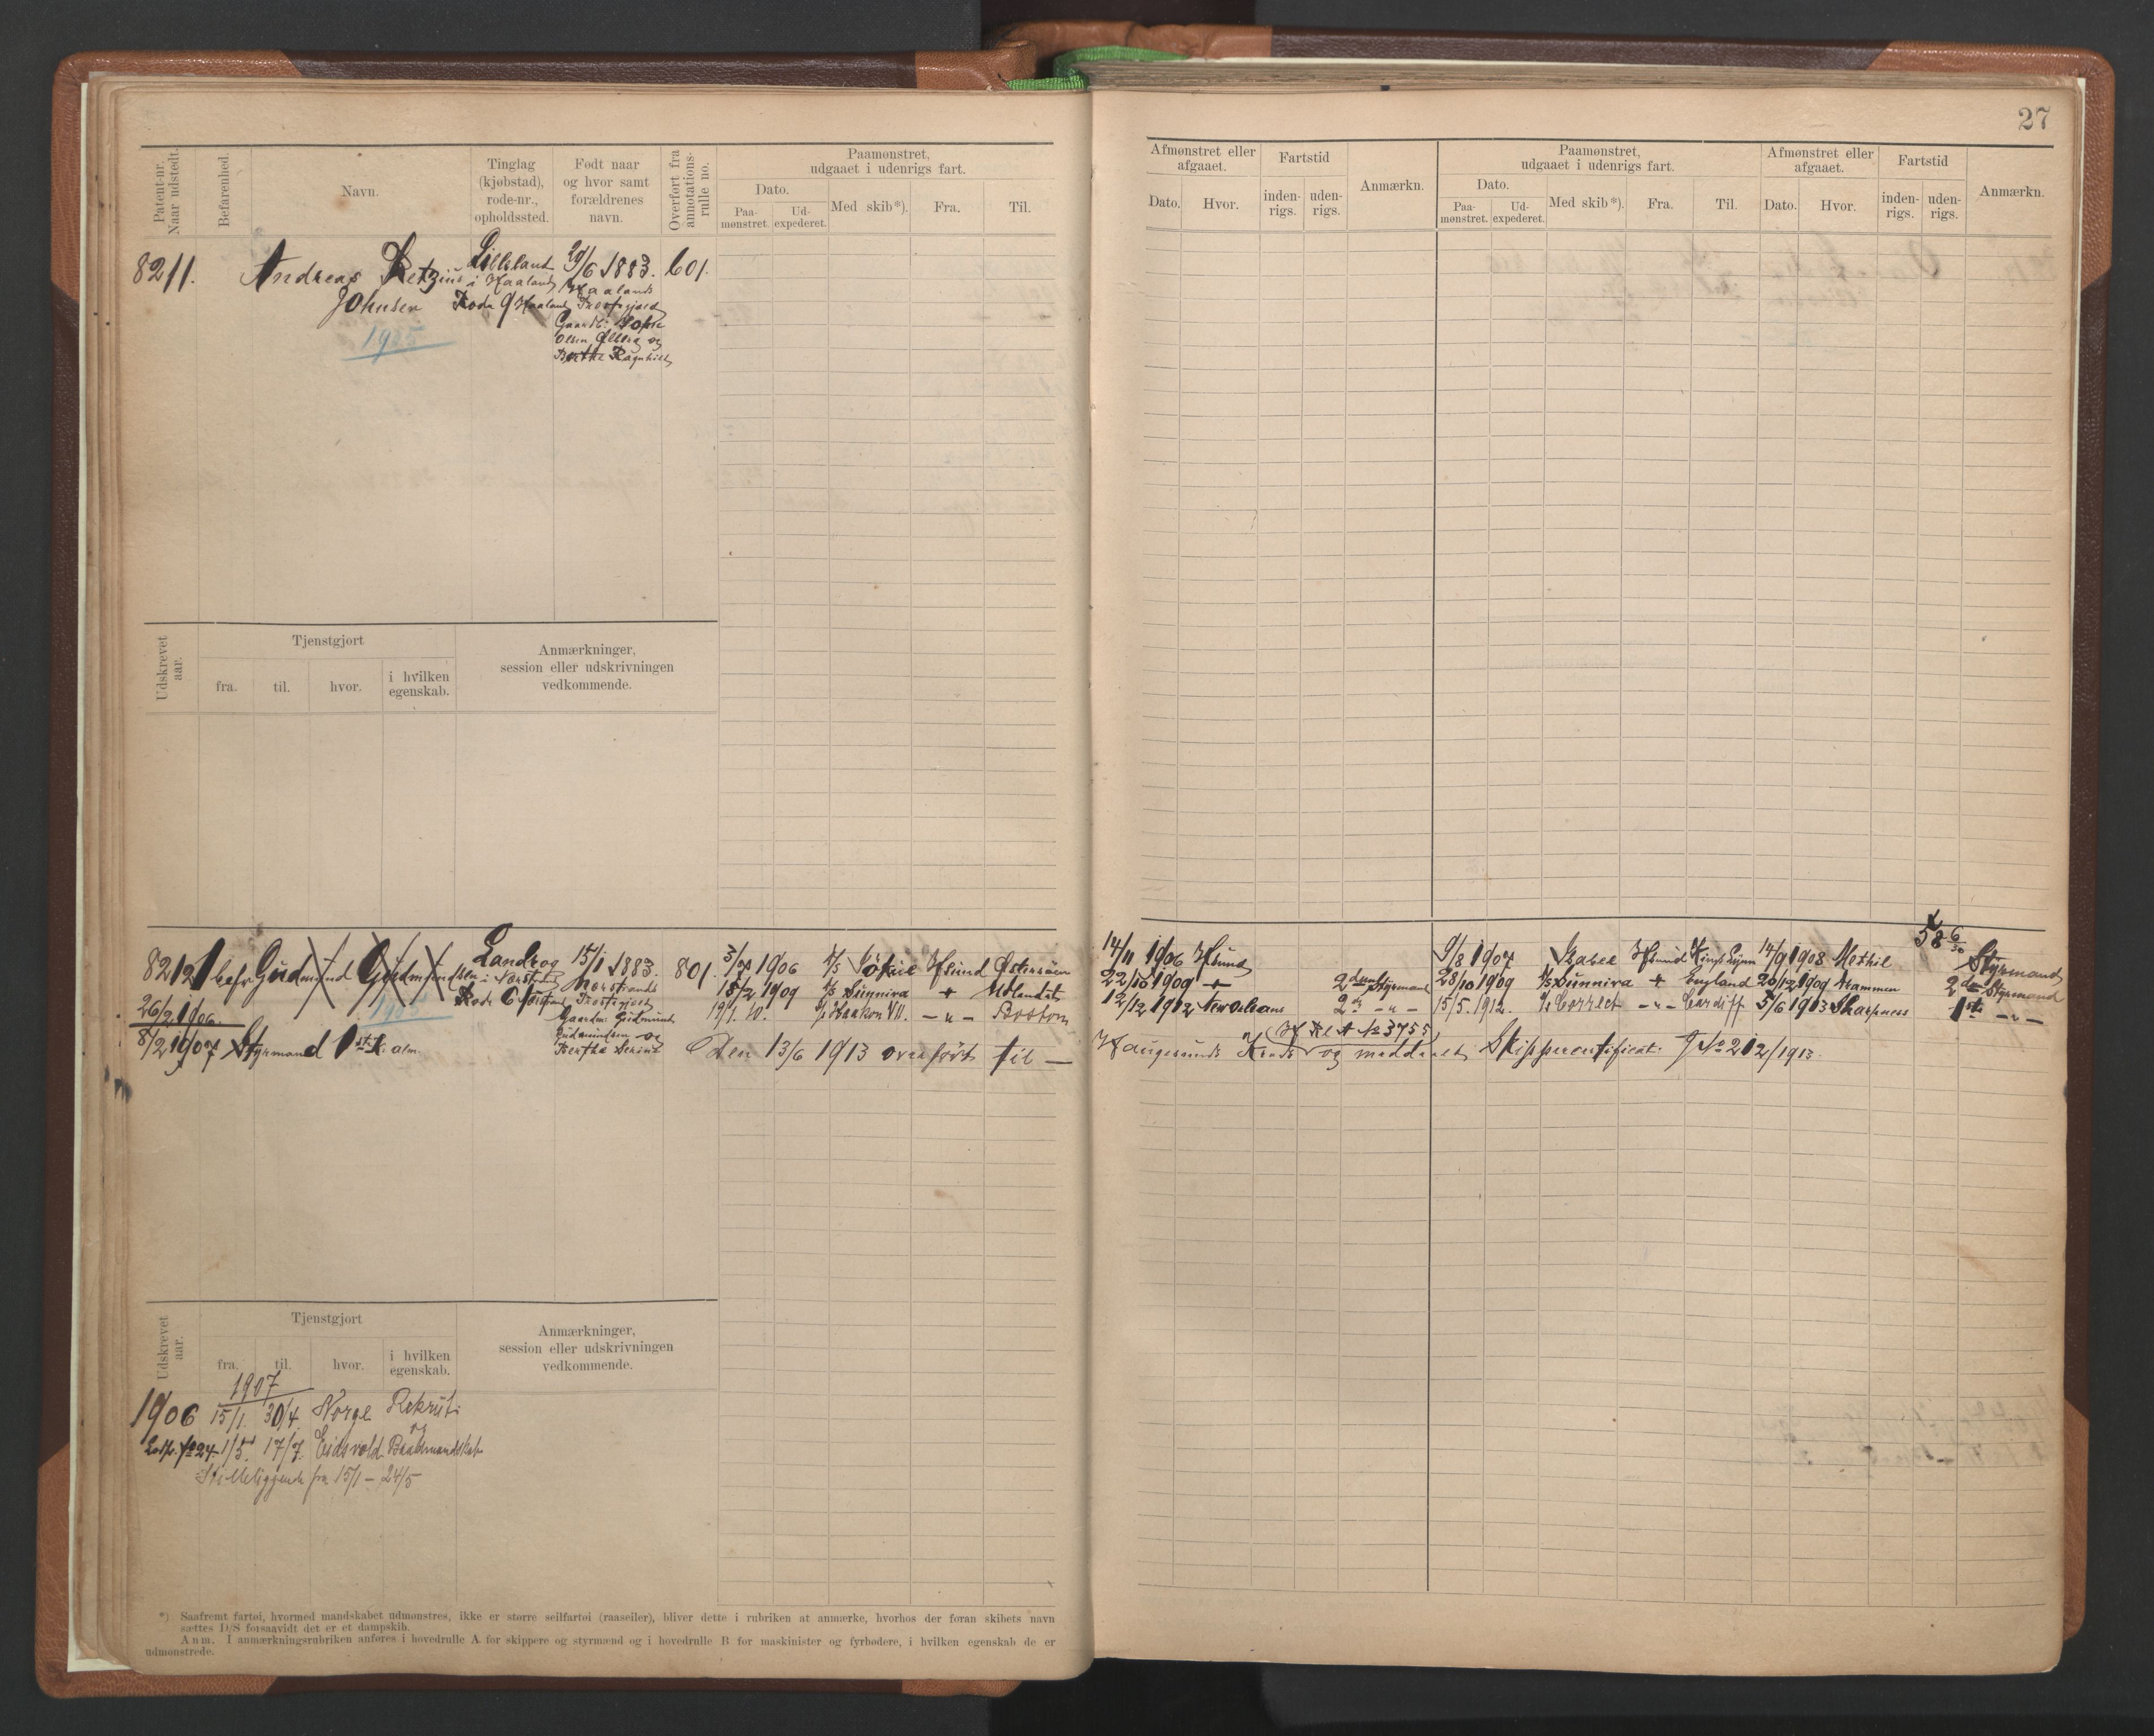 27
Patent-nr.
Naar udstedt.
Befarenhed.
Navn.
Tinglag
(kjøbstad),
rode-nr.,
opholdssted.
Født naar
og hvor samt
forældrenes
navn.
Overført fra
annotations-
rulle no.
Paamønstret,
udgaaet i udenrigs fart.
Dato.
Paa-
mønstret.
Ud-
expederet.
Med skib*).
Fra.
Til.
Afmønstret eller
afgaaet.
Dato.
Hvor.
Fartstid
inden-
rigs.
uden-
rigs.
Anmærkn.
Paamønstret,
udgaaet i udenrigs fart.
Dato.
Paa-
mønstret.
Ud-
expederet.
Med skib*).
Fra.
Til.
Afmønstret eller
afgaaet.
Dato.
Hvor.
Fartstid
inden-
rigs.
uden-
rigs.
Anmærkn.
8211.
Andreas Retzius
Johnsen
1905
Lilleland
i Haaland
Rode 9 Haaland
/6 1883.
Haalands
Prestegjæld
Gaardb:
Olsen og
Berthe Ragnhild
601.
Udskrevet
aar.
Tjenstgjort
fra.
til.
hvor.
i hvilken
egenskab.
Anmærkninger,
session eller udskrivningen
vedkommende.
8212 1 befr Gudmund Gudmundsen
26/2 1906.
8/2 1907 Styrmand 1ste k. alm.
1905
Landrog
i
Rode 6
15/1 1883.
Prestegjæld
Gaardm: Gudmund
Gudmundsen og
Bertha
801.
3/7 1906 S/S Jökul Hsund Østersöen
14/11 1906 Hsund
9/8 1907 Isabel Hsund Kings Lynn 14/9 1908 Methil
58 6/30
Styrmand
18/2 1909 S/S Sunniva + Udlandet
22/10 1909 +
2den Styrmand
28/10 1909 S/S Sunniva + England 20/12 1909 Drammen
2den Styrmand
19/1. 10. S/S Haakon VII. -"- Boston
12/12 1912 New Orleans
2d -"-
15/5. 1912. -"- Cardiff 5/6 1913 Sharpness
1ste -"-
Den 13/6 1913 overført til —
Haugesunds Kreds (H Rl A No 3755) og meddelt Skippercertificat. J No 212/1913.
Udskrevet
aar.
Tjenstgjort
fra.
til.
hvor.
i hvilken
egenskab.
Anmærkninger,
session eller udskrivningen
vedkommende.
1907
1906 15/1. 30/4. Norge Rekrut
og
No 24. 1/5. 17/7. Eidsvold Baadsmandskab
Stilleliggende fra 15/1 - 24/5
*) Saafremt fartøi, hvormed mandskabet udmønstres, ikke er større seilfartøi (raaseiler), bliver dette i rubriken at anmærke, hvorhos der foran skibets navn
sættes D/S forsaavidt det er et dampskib.
Anm. I anmærkningsrubriken anføres i hovedrulle A for skippere og styrmænd og i hovedrulle B for maskinister og fyrbødere, i hvilken egenskab de er
udmønstrede.